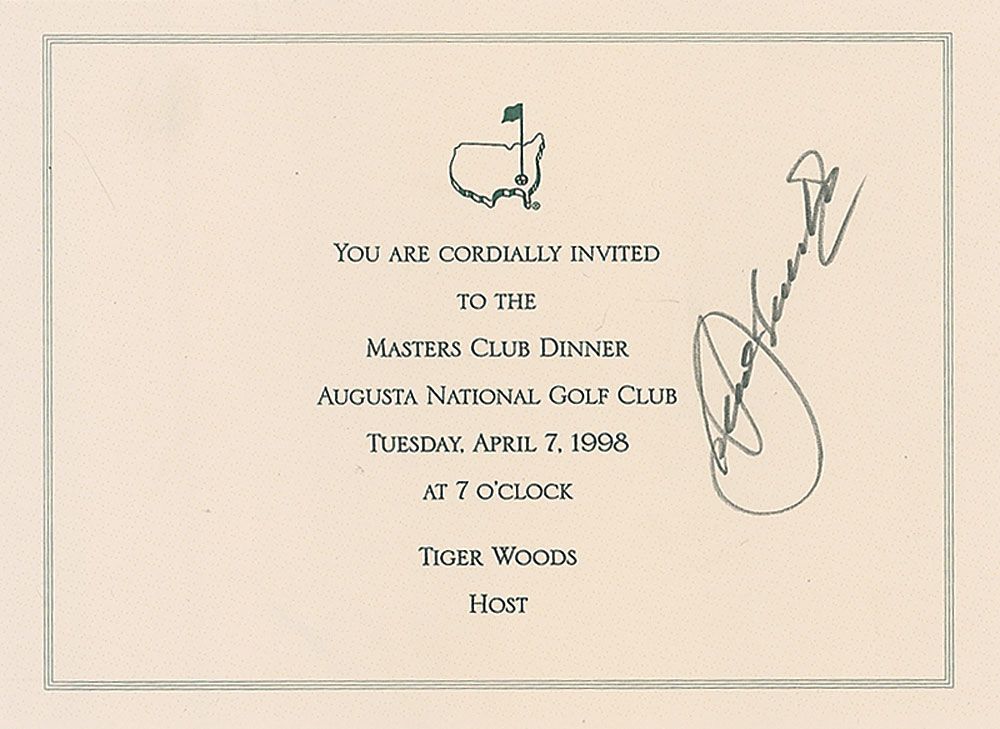 You are cordially invited
to the
Masters Club Dinner
Augusta National Golf Club
Tuesday, April 7, 1998
at 7 o'clock
Tiger Woods
Host